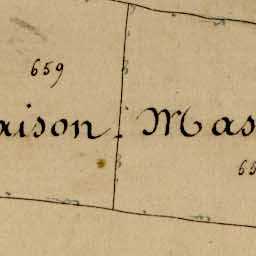 659
aison Mas
65